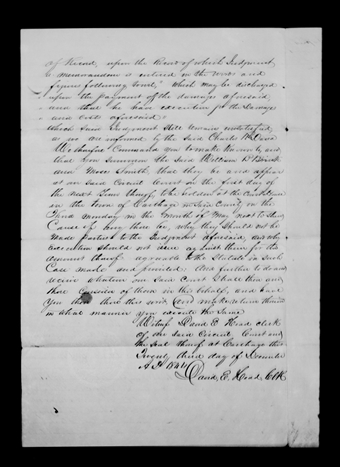 of Record, upon the Back of which Judgment,
a Memorandum is entered in the words and
figures following towit, "which may be discharged
upon the payment of the damages aforesaid
and that he have execution for the Damages
and Costs aforesaid:
Which Said Judgment Still remains unsatisfied,
as we are informed by the Said Charles
We therefore Command you to make Known by and
that you Summon the Said William D
and Moses Smith, that they be and appear
at our Said Circuit Court on the first day of
the next Term thereof, to be holden at the Court House
in the Town of Carthage in Said County on the
Third Monday in the Month of May next to Show
Cause if any there be, why they Should not be
Made parties to the Judgment aforesaid, and why
execution Should not issue against them for the
amount thereof agreeable to the Statute in Such
Case made and provided. And further to do and
receive whatever our Said Court Shall then and
there consider of them in this behalf, and have
You then there this writ, and make return thereon
in what manner you execute the Same
Witness David E. Head clerk
of our Said Circuit Court and
the Seal thereof at Carthage this
Twenty third day of December
A.D. 1844
David E. Head, Clk